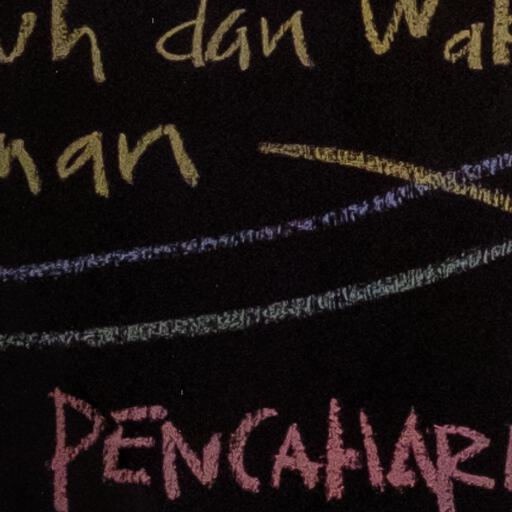 uh dan Wak
nan
PENCAHARI